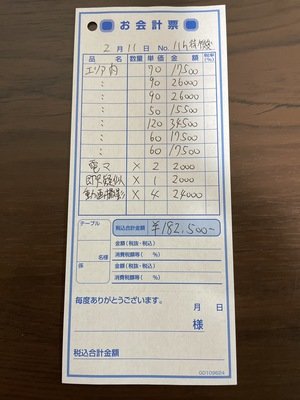 お会計票
2月11日 No. 11
品名 数量 単価 金額 税率(%)
エリア内 70 17500
〃 90 26000
〃 90 26000
〃 50 15500
〃 120 34500
〃 60 17500
〃 60 17500
電マ × 2 2000
即尺疑似 × 1 2000
動画撮影 × 4 24000
テーブル
名様
係
税込合計金額 ¥182,500-
金額(税抜・税込)
消費税額等( %)
金額(税抜・税込)
消費税額等( %)
毎度ありがとうございます。
月 日
様
税込合計金額
00109624